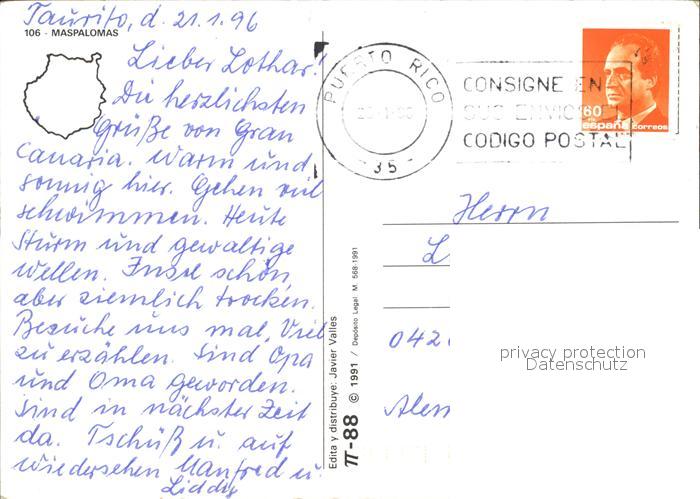 Taurito, d. 21.1.96
106 - MASPALOMAS
Lieber Lothar!
Die herzlichsten
Grüße von Gran
Canaria. Warm und
sonnig hier. Gehen viel
schwimmen. Heute
Sturm und gewaltige
Wellen. Insel schön,
aber ziemlich trocken.
Besuche uns mal, Viel
zu erzählen. Sind Opa
und Oma geworden.
Sind in nächster Zeit
da. Tschüß u. auf
wiedersehen Manfred u.
Liddy
Edita y distribuye: Javier Valles
π-88 © 1991 / Depósito Legal: M. 568-1991
PUERTO RICO
- 35 -
CONSIGNE EN
SUS ENVIOS EL
CODIGO POSTAL
60
españa correos
Herrn
L
042
Aless
privacy protection
Datenschutz